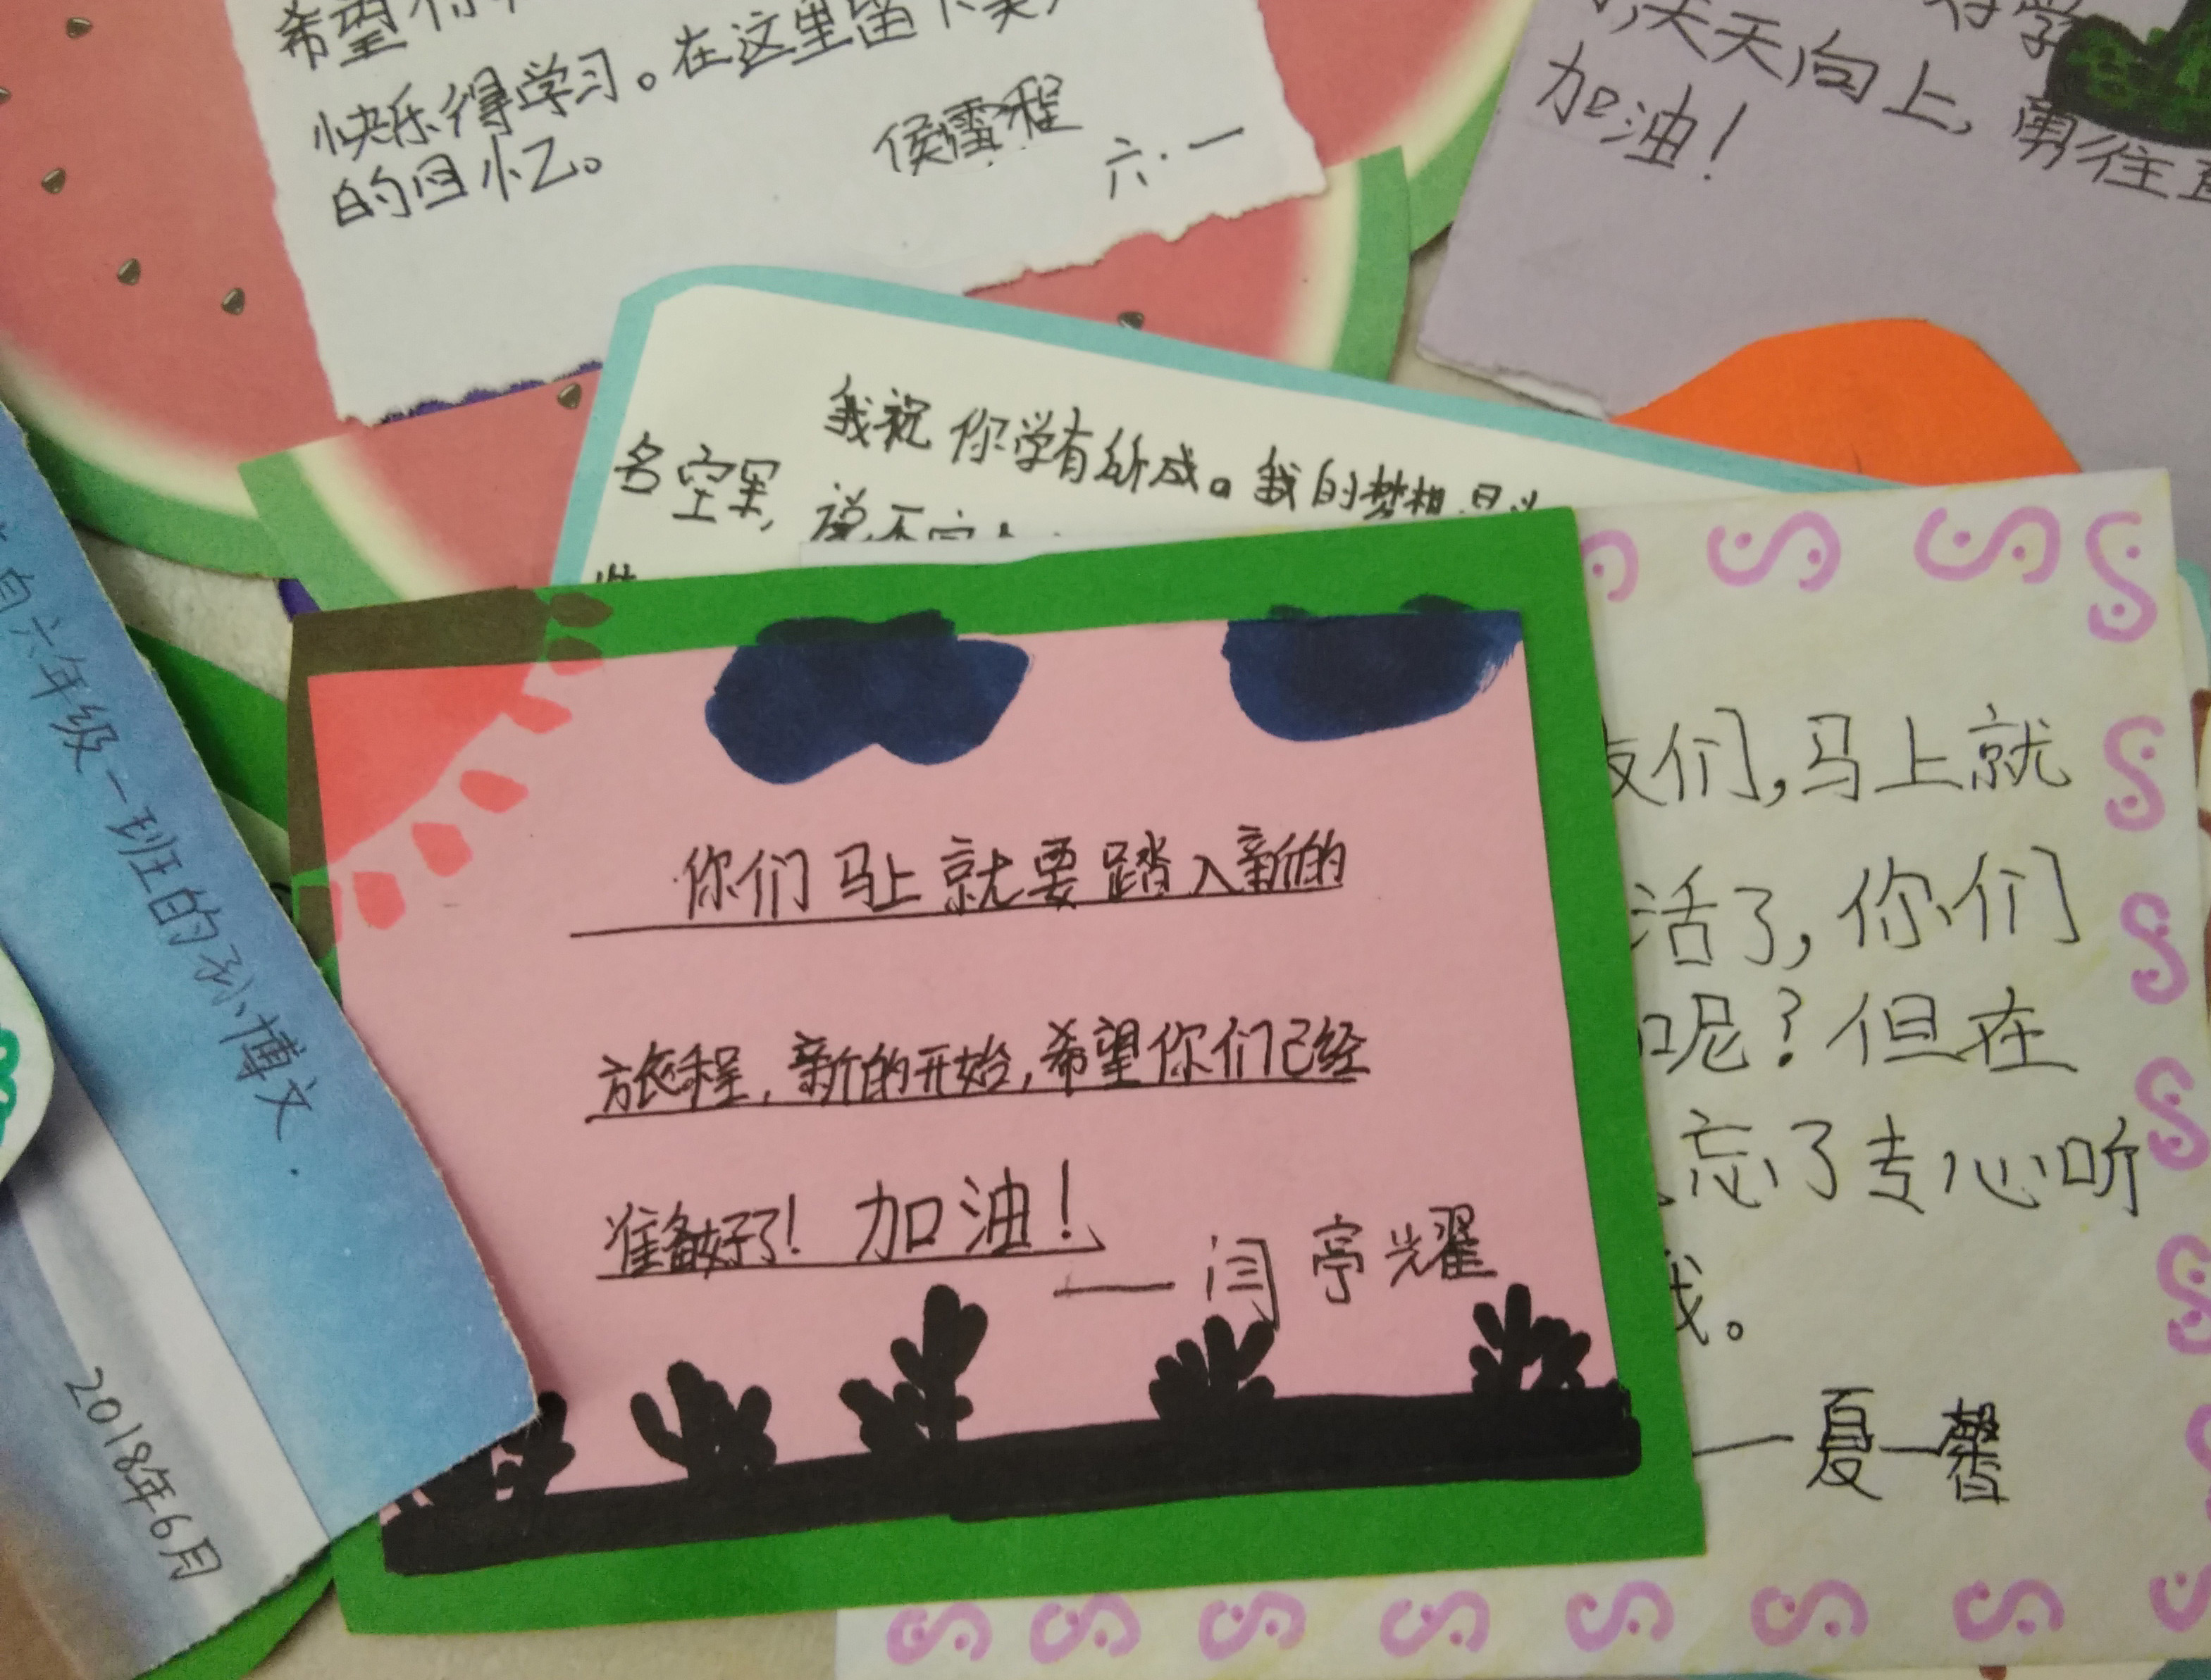 希望你
快乐得学习。在这里留下美
的回忆。
侯雪程
六·一
天天向上，勇往直
加油！
我祝你学有所成。我的梦想是
名空军，说不定
自六年级一班的孙博文.
2018年6月
你们马上就要踏入新的
旅程，新的开始，希望你们已经
准备好了！加油！
——闫亭耀
友们，马上就
活了，你们
呢？但在
忘了专心听
我。
——夏一馨